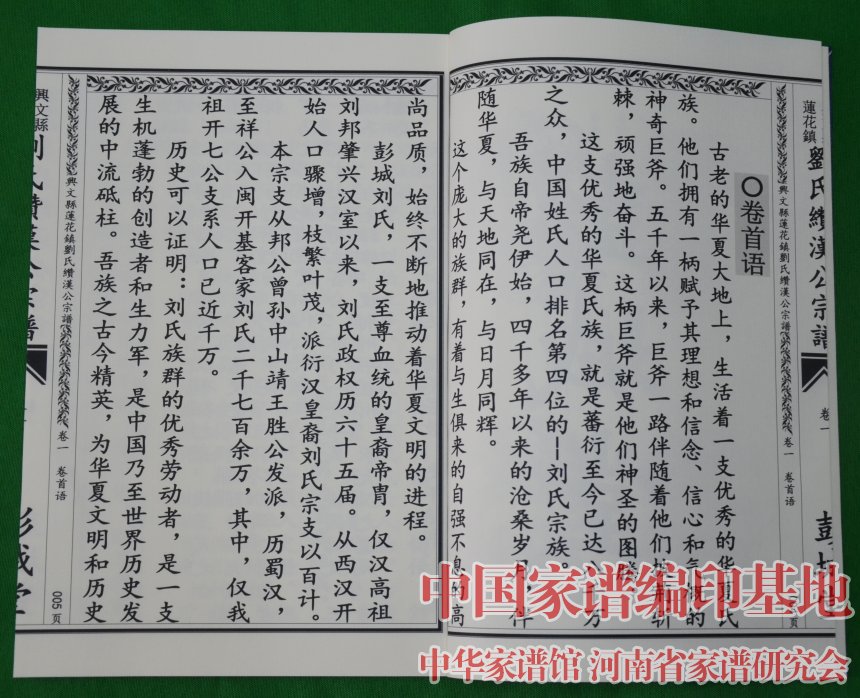 蓮花鎮 劉氏纘漢公宗譜 卷一
興文縣蓮花鎮劉氏纘漢公宗譜 卷一 卷首语
○卷首语
古老的华夏大地上，生活着一支优秀的华夏氏
族。他们拥有一柄赋予其理想和信念、信心和气概的
神奇巨斧。五千年以来，巨斧一路伴随着他们
棘，顽强地奋斗。这柄巨斧就是他们神圣的图腾。
这支优秀的华夏氏族，就是蕃衍至今已达八千万
之众，中国姓氏人口排名第四位的—刘氏宗族。
吾族自帝尧伊始，四千多年以来的沧桑岁月，伴
随华夏，与天地同在，与日月同辉。
这个庞大的族群，有着与生俱来的自强不息的高
尚品质，始终不断地推动着华夏文明的进程。
彭城刘氏，一支至尊血统的皇裔帝胄，仅汉高祖
刘邦肇兴汉室以来，刘氏政权历六十五届。从西汉开
始人口骤增，枝繁叶茂，派衍汉皇裔刘氏宗支以百计。
本宗支从邦公曾孙中山靖王胜公发派，历蜀汉，
至祥公入闽开基客家刘氏二千七百余万，其中，仅我
祖开七公支系人口已近千万。
历史可以证明：刘氏族群的优秀劳动者，是一支
生机蓬勃的创造者和生力军，是中国乃至世界历史发
展的中流砥柱。吾族之古今精英，为华夏文明和历史
興文縣蓮花鎮劉氏纘漢公宗譜 卷一 卷首语
005页
興文縣
彭城堂
中国家谱编印基地
中华家谱馆 河南省家谱研究会